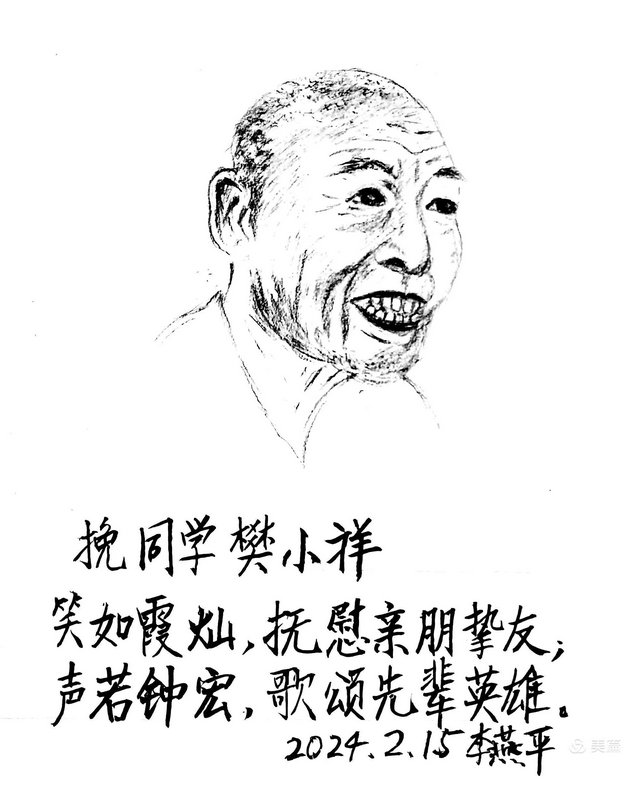 挽同学樊小祥
笑如霞灿,抚慰亲朋挚友;
声若钟宏,歌颂先辈英雄。
2024.2.15李燕平
美篇